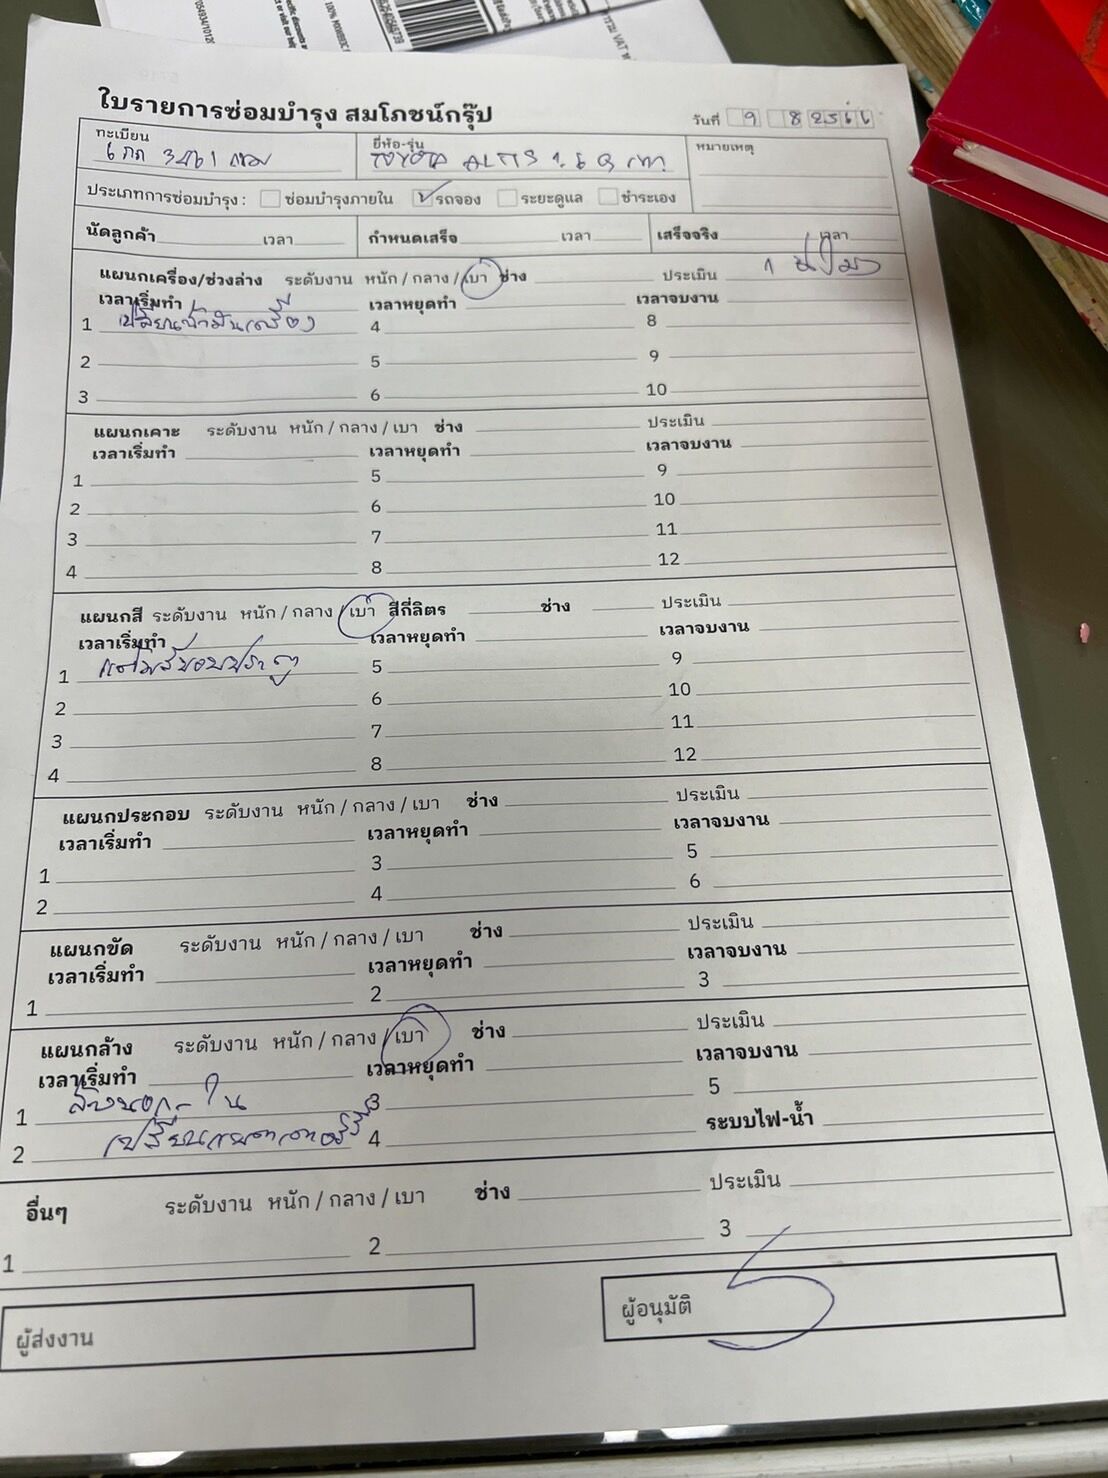 ใบรายการซ่อมบำรุง สมโภชน์กรุ๊ป
วันที่ 9 8 2566
ทะเบียน
6 กก 3461 กทม
ยี่ห้อ-รุ่น
TOYOTA ALTIS 1.6 G เทา
หมายเหตุ
ประเภทการซ่อมบำรุง : ซ่อมบำรุงภายใน รถจอง ระยะดูแล ชำระเอง
นัดลูกค้า เวลา กำหนดเสร็จ เวลา เสร็จจริง เวลา
แผนกเครื่อง/ช่วงล่าง ระดับงาน หนัก / กลาง / เบา ช่าง ประเมิน 1 ชั่วโมง
เวลาเริ่มทำ เวลาหยุดทำ เวลาจบงาน
1 เปลี่ยนน้ำมันเครื่อง 4 8
2 5 9
3 6 10
แผนกเคาะ ระดับงาน หนัก / กลาง / เบา ช่าง ประเมิน
เวลาเริ่มทำ เวลาหยุดทำ เวลาจบงาน
1 5 9
2 6 10
3 7 11
4 8 12
แผนกสี ระดับงาน หนัก / กลาง / เบา สีกี่ลิตร ช่าง ประเมิน
เวลาเริ่มทำ เวลาหยุดทำ เวลาจบงาน
1 แต้มสีขอบประตู 5 9
2 6 10
3 7 11
4 8 12
แผนกประกอบ ระดับงาน หนัก / กลาง / เบา ช่าง ประเมิน
เวลาเริ่มทำ เวลาหยุดทำ เวลาจบงาน
1 3 5
2 4 6
แผนกขัด ระดับงาน หนัก / กลาง / เบา ช่าง ประเมิน
เวลาเริ่มทำ เวลาหยุดทำ เวลาจบงาน
1 2 3
แผนกล้าง ระดับงาน หนัก / กลาง / เบา ช่าง ประเมิน
เวลาเริ่มทำ เวลาหยุดทำ เวลาจบงาน
1 ล้างนอก-ใน 3 5
2 เปลี่ยนแบตเตอรี่ 4 ระบบไฟ-น้ำ
อื่นๆ ระดับงาน หนัก / กลาง / เบา ช่าง ประเมิน
1 2 3
ผู้ส่งงาน
ผู้อนุมัติ